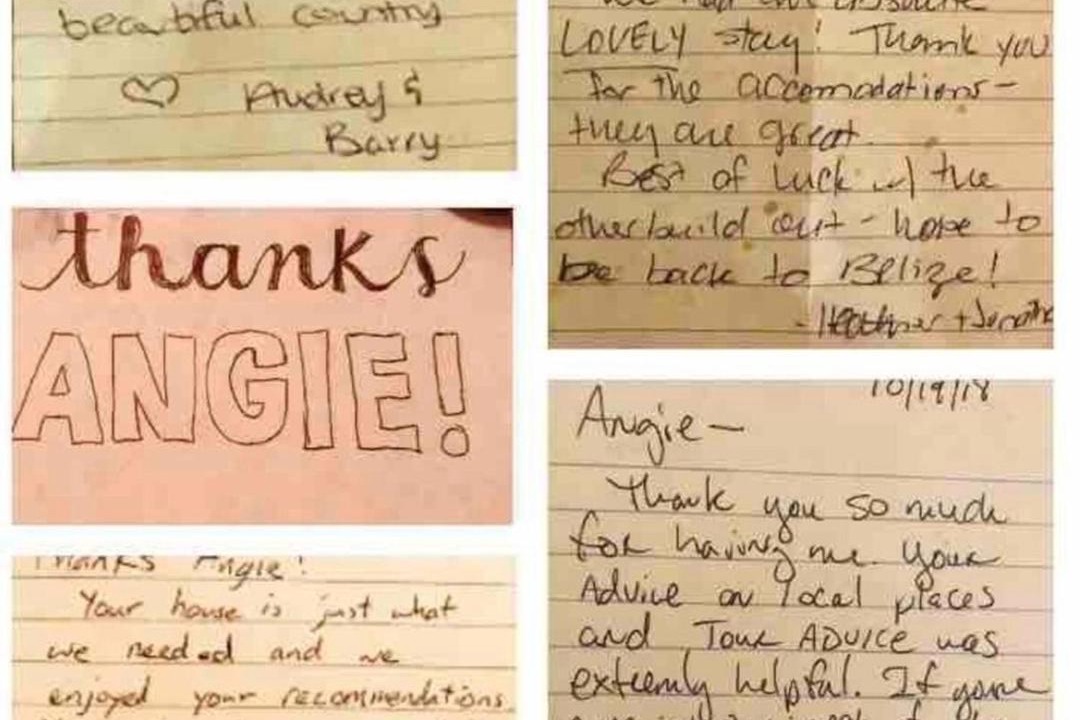 beautiful country
♡ Audrey &
Barry
thanks
ANGIE!
Thanks Angie!
Your house is just what
we needed and we
enjoyed your recommendations
LOVELY stay! Thank you
for the accomodations -
they are great.
Best of luck w/ the
other build out - hope to
be back to Belize!
- Heather +
10/19/18
Angie —
Thank you so much
for having me. Your
Advice on local places
and Tour ADVICE was
extremly helpful. If youre